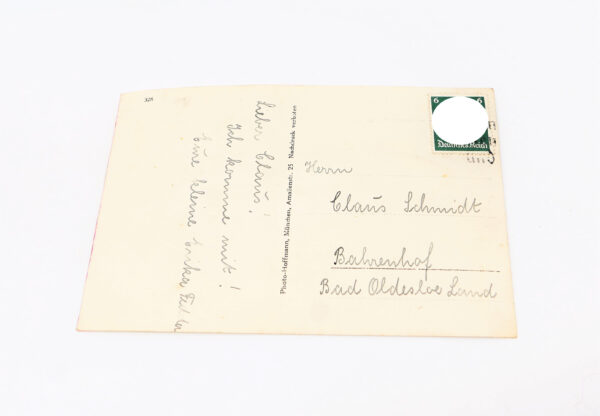 328
Lieber Claus!
Ich komme mit!
Eure kleine Erika
Photo-Hoffmann, München, Amalienstr. 25 Nachdruck verboten
6 6
Deutsches Reich
Herrn
Claus Schmidt
Bahrenhof
Bad Oldesloe Land